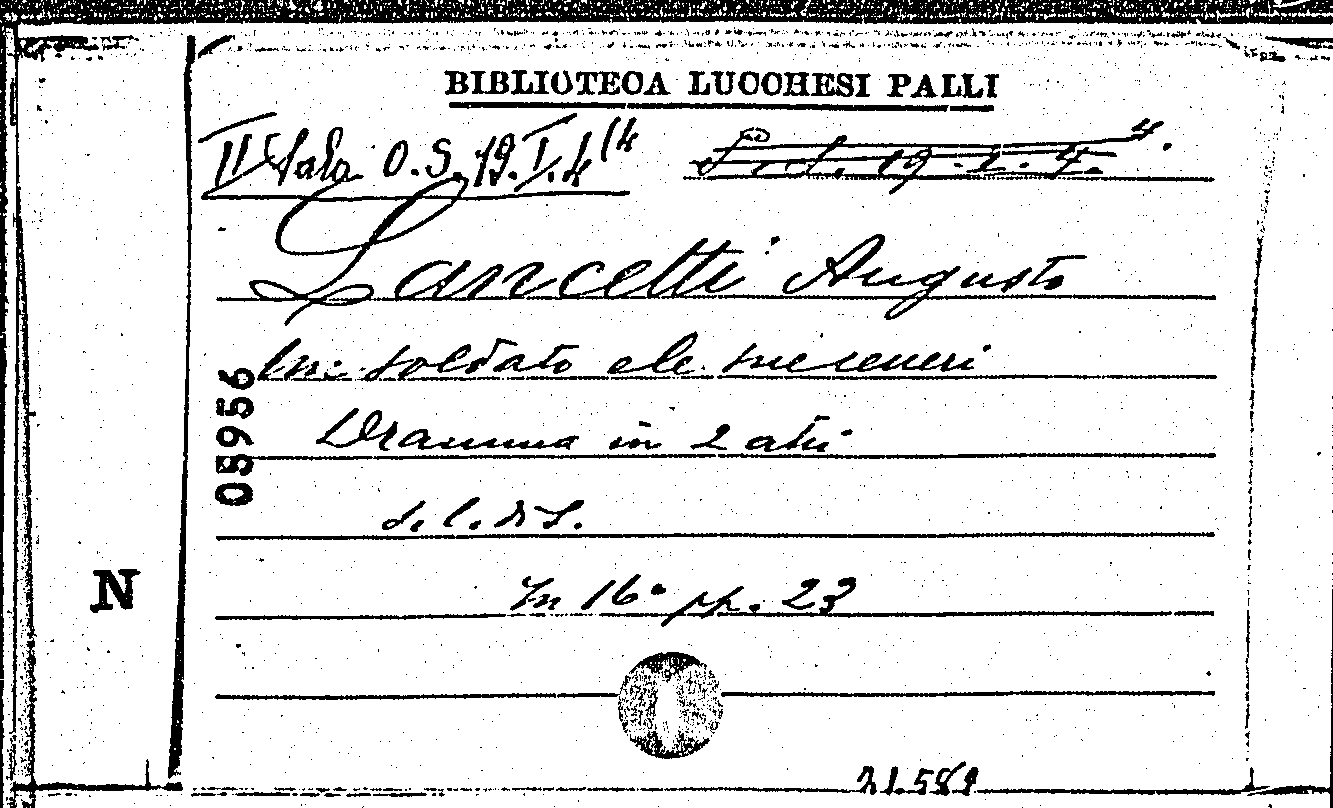 BIBLIOTECA LUCCHESI PALLI
II Sala O. S. 19. I. 4 (4
Lancetti Augusto
Un soldato
Dramma in 2 atti
s. l. di S.
In 16° pp. 23
05956
N
21.581